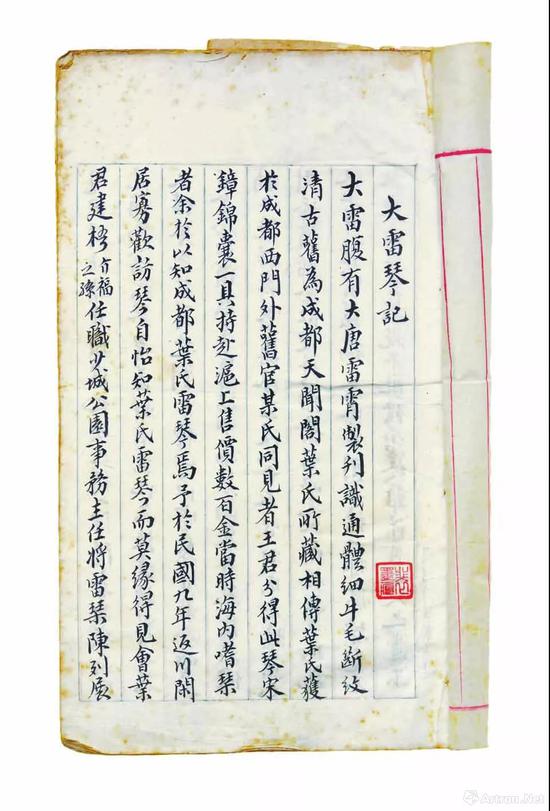 大雷琴記
大雷腹有大唐雷霄製刋識通體細牛毛斷紋
清古舊為成都天聞閣葉氏所藏相傳葉氏獲
於成都西門外舊官某氏同見者王君分得此琴宋
錦囊一具持赴滬上售價數百金當時海內嗜琹
者余於以知成都葉氏雷琴焉予於民國九年返川閑
居寡歡訪琴自怡知葉氏雷琴而莫緣得見會葉
君建梧介福之孫任職少城公園事務主任將雷琹陳列展
Artron.Net